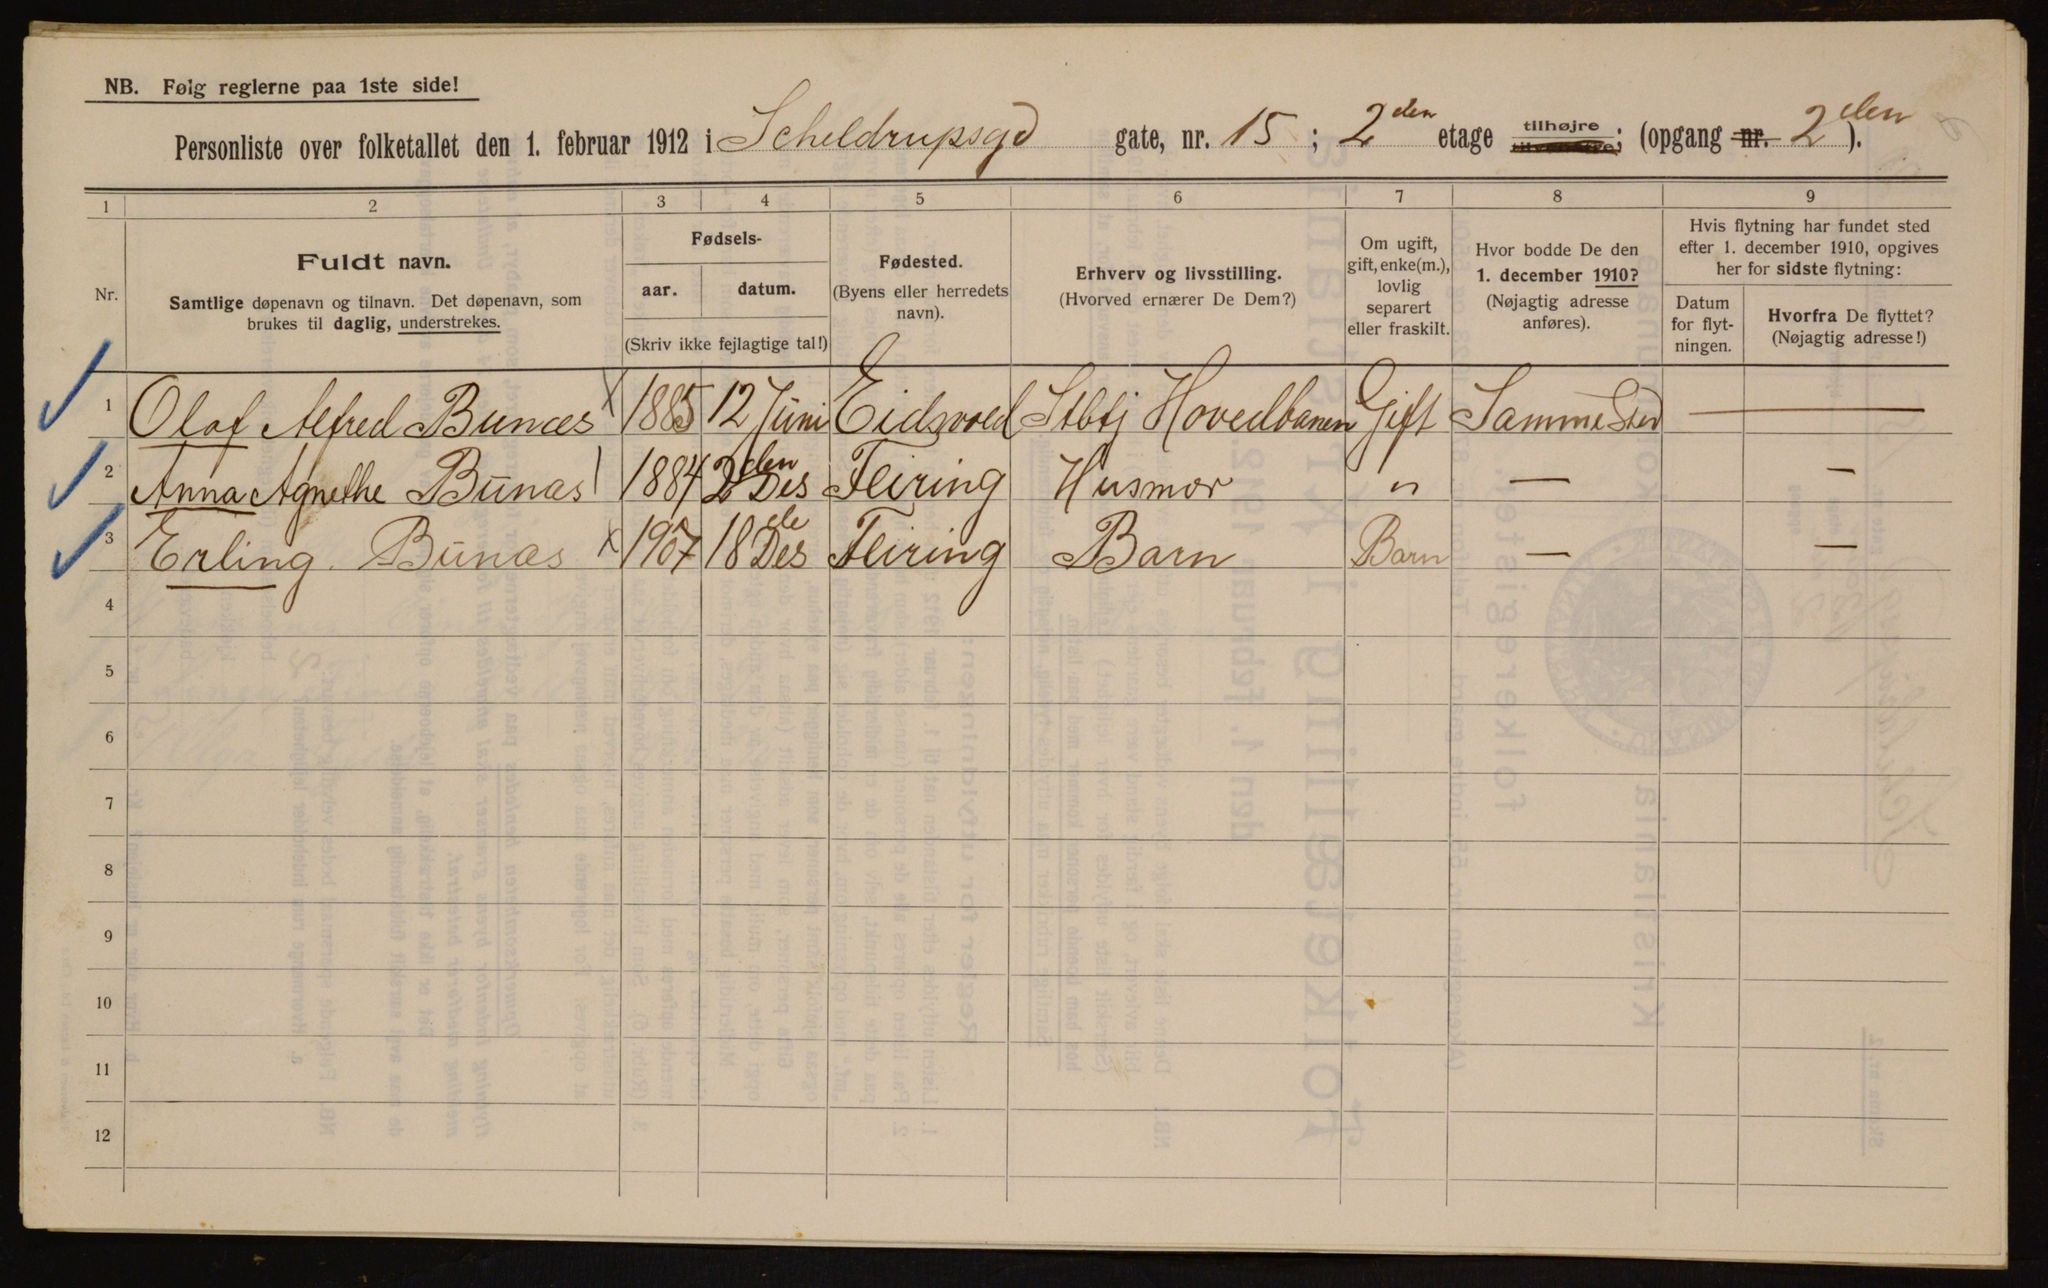 NB. Følg reglerne paa 1ste side!
Personliste over folketallet den 1. februar 1912 i Scheldrupsgd gate, nr. 15 ; 2den etage tilhøjre tilvenstre; (opgang nr. 2den ).
1 2 3 4 5 6 7 8 9
Nr.
Fuldt navn.
Samtlige døpenavn og tilnavn. Det døpenavn, som
brukes til daglig, understrekes.
Fødsels-
aar. datum.
(Skriv ikke fejlagtige tal!)
Fødested.
(Byens eller herredets
navn).
Erhverv og livsstilling.
(Hvorved ernærer De Dem?)
Om ugift,
gift, enke(m.),
lovlig
separert
eller fraskilt.
Hvor bodde De den
1. december 1910?
(Nøjagtig adresse
anføres).
Hvis flytning har fundet sted
efter 1. december 1910, opgives
her for sidste flytning:
Datum
for flyt-
ningen.
Hvorfra De flyttet?
(Nøjagtig adresse!)
1 Olaf Alfred Bunæs 1885 12 Juni Eidsvold Stbtj Hovedbanen Gift Samme Sted —
2 Anna Agnethe Bunæs 1884 2den Des Feiring Husmor " — —
3 Erling Bunæs 1907 18de Des Feiring Barn Barn — —
4
5
6
7
8
9
10
11
12